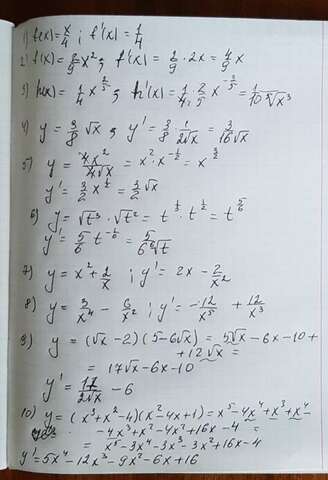 1) f(x)=x/4 ; f'(x)=1/4
2) f(x)=2/9 x², f'(x)=2/9 · 2x = 4/9 x
3) h(x)=1/4 x^(2/5), h'(x)=1/4 · 2/5 x^(-3/5) = 1/(10 ⁵√x³)
4) y = 3/8 √x, y' = 3/8 · 1/(2√x) = 3/(16√x)
5) y = 4x²/(4√x) = x² · x^(-1/2) = x^(3/2)
y' = 3/2 x^(1/2) = 3/2 √x
6) y = ³√t · √t = t^(1/3) · t^(1/2) = t^(5/6)
y' = 5/6 t^(-1/6) = 5/(6 ⁶√t)
7) y = x² + 2/x ; y' = 2x - 2/x²
8) y = 3/x⁴ - 6/x² ; y' = -12/x⁵ + 12/x³
9) y = (√x - 2)(5-6√x) = 5√x - 6x - 10 +
+ 12√x =
= 17√x - 6x - 10
y' = 17/(2√x) - 6
10) y = (x³+x²-4)(x²-4x+1) = x⁵-4x⁴+x³+x⁴-
-4x³+x²-4x²+16x-4 =
= x⁵-3x⁴-3x³-3x²+16x-4
y' = 5x⁴-12x³-9x²-6x+16